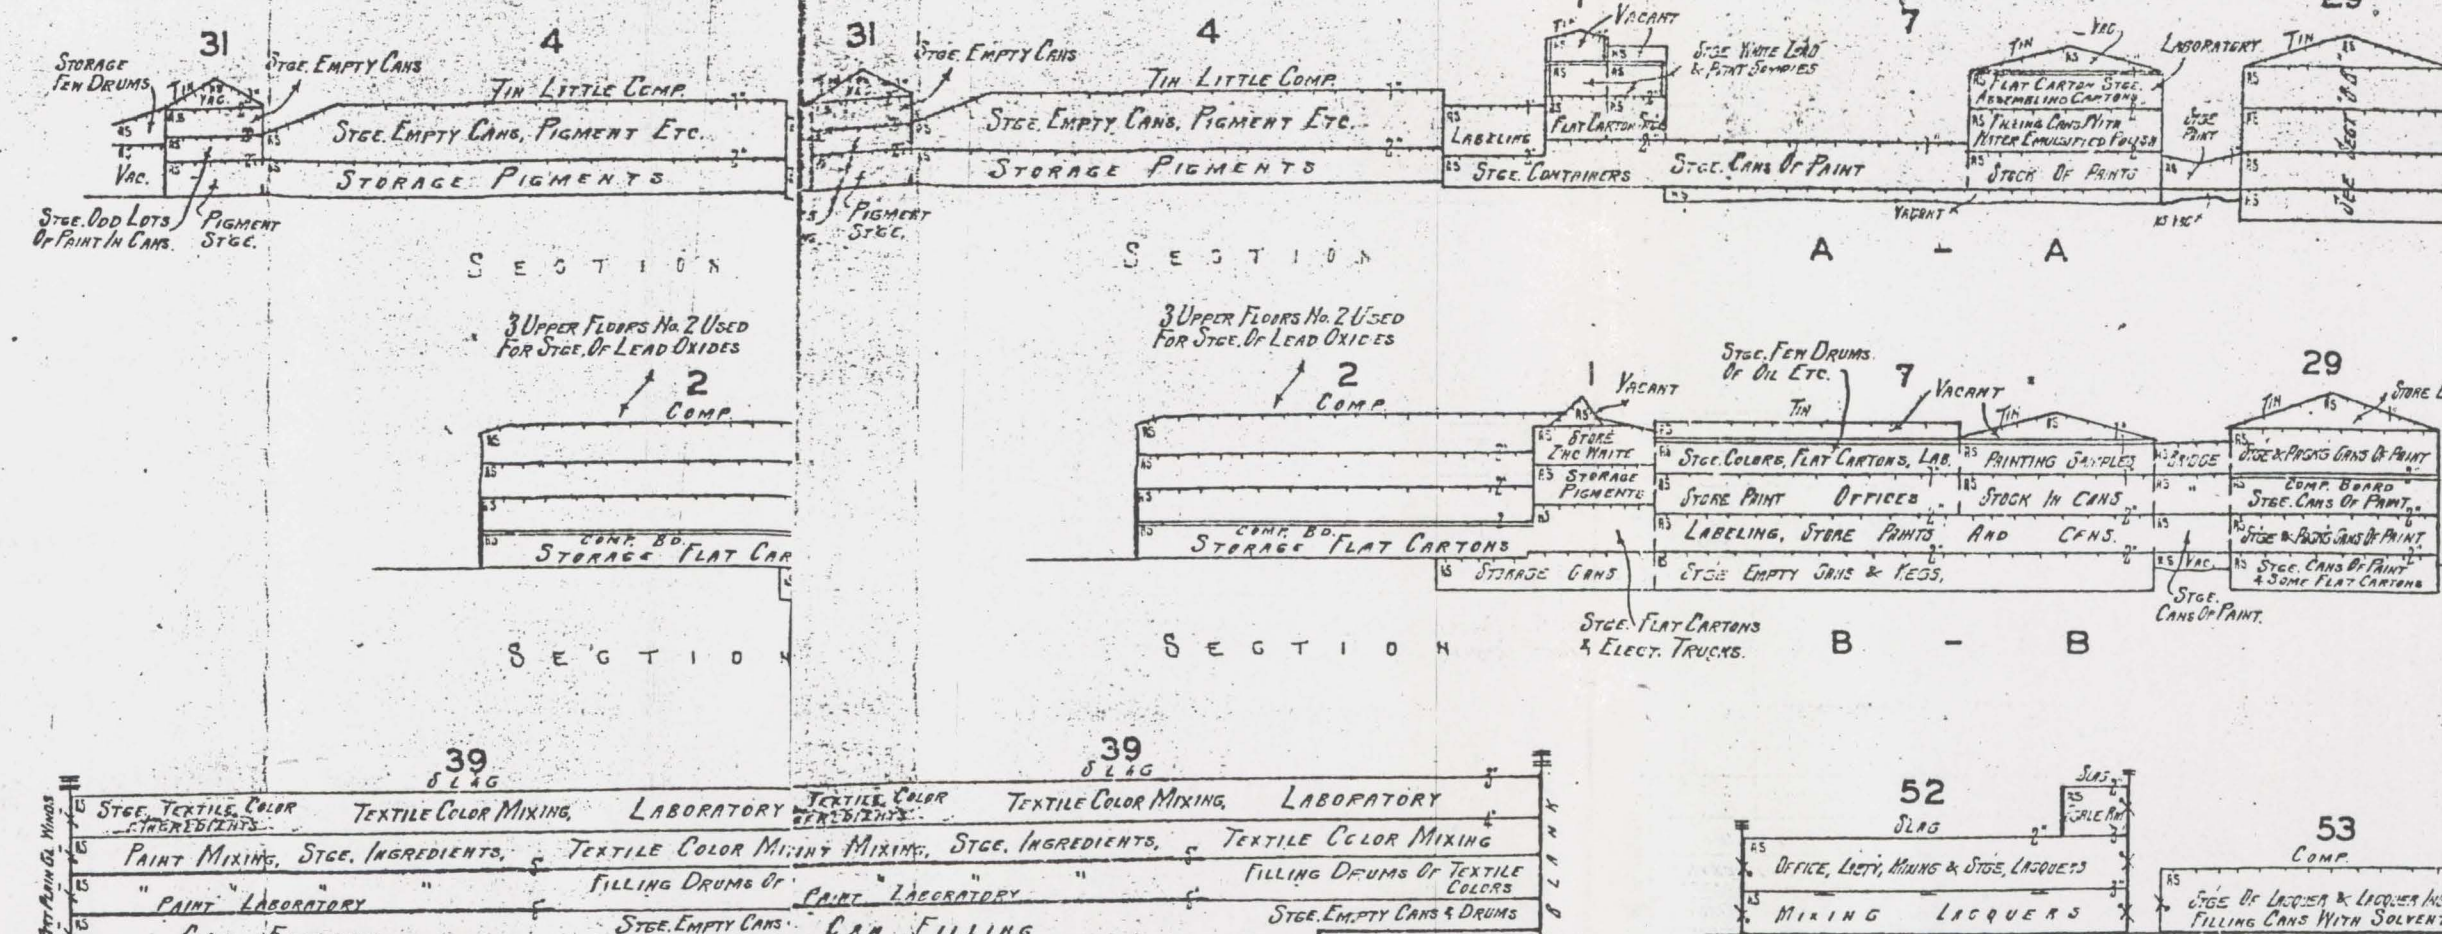 31
4
31
4
7
STORAGE
FEW DRUMS
STGE. EMPTY CANS
TIN
VAC.
TIN LITTLE COMP.
STGE. EMPTY CANS, PIGMENT ETC.
STORAGE PIGMENTS
VAC.
STGE. ODD LOTS
OF PAINT IN CANS.
PIGMENT
STGE.
STGE. EMPTY CANS
TIN LITTLE COMP.
STGE. EMPTY CANS, PIGMENT ETC.
STORAGE PIGMENTS
PIGMENT
STGE.
LABELING
STGE. CONTAINERS
TIN
VACANT
STGE WHITE LEAD
& PAINT SAMPLES
FLAT CARTON
STGE. CANS OF PAINT
TIN
VAC.
LABORATORY
FLAT CARTON STGE.
ASSEMBLING CARTONS.
FILLING CANS WITH
WATER EMULSIFIED POLISH
STOCK OF PAINTS
VACANT
STGE
PAINT
TIN
SECTION
SECTION A - A
3 UPPER FLOORS No. 2 USED
FOR STGE. OF LEAD OXIDES
2
COMP.
COMP. BD.
STORAGE FLAT CAR
3 UPPER FLOORS No. 2 USED
FOR STGE. OF LEAD OXIDES
2
COMP.
COMP. BD.
STORAGE FLAT CARTONS
1
VACANT
STORE
ZINC WHITE
STORAGE
PIGMENTS
STORAGE CANS
STGE. FLAT CARTONS
& ELECT. TRUCKS.
STGE. FEW DRUMS
OF OIL ETC.
7
VACANT
TIN
TIN
STGE. COLORS, FLAT CARTONS, LAB.
PAINTING SAMPLES
BRIDGE
STORE PAINT OFFICES
STOCK IN CANS
"
LABELING, STORE PAINTS AND CANS.
STGE EMPTY CANS & KEGS,
VAC.
STGE.
CANS OF PAINT.
29
TIN
STORE
STGE & PACKG CANS OF PAINT
COMP. BOARD
STGE. CANS OF PAINT
STGE & PACKG CANS OF PAINT
STGE. CANS OF PAINT
& SOME FLAT CARTONS
SECTION
SECTION B - B
39
SLAG
STGE. TEXTILE COLOR
INGREDIENTS
TEXTILE COLOR MIXING, LABORATORY
PAINT MIXING, STGE. INGREDIENTS, TEXTILE COLOR MI
" " " "
PAINT LABORATORY
FILLING DRUMS OF
STGE. EMPTY CANS
39
SLAG
TEXTILE COLOR
TEXTILE COLOR MIXING, LABORATORY
MIXING, STGE. INGREDIENTS, TEXTILE COLOR MIXING
" "
PAINT LABORATORY
FILLING DRUMS OF TEXTILE
COLORS
CAN FILLING
STGE. EMPTY CANS & DRUMS
BLANK
52
SLAG
SLAG
SCALE RM
OFFICE, LABTY, MIXING & STGE. LACQUERS
MIXING LACQUERS
53
COMP.
STGE OF LACQUER & LACQUER
FILLING CANS WITH SOLVENT